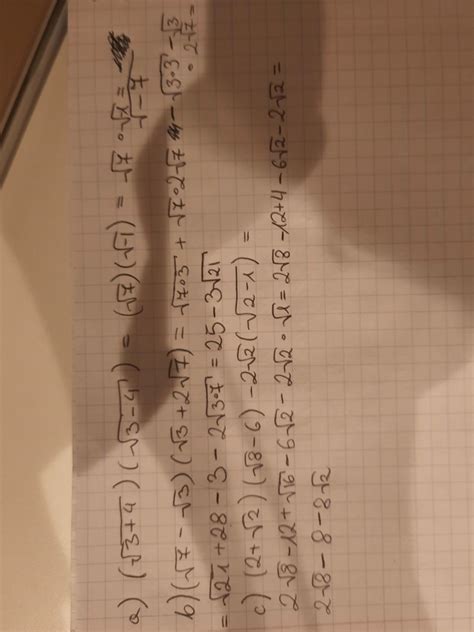 a) (√3+4)(√3-4) = (√7)(√-1) = √7 · √1 = √-7
b) (√7 - √3)(√3+2√7) = √7·3 + √7·2√7 - √3·3 - √3 · 2√7 =
= √21 + 28 - 3 - 2√3·7 = 25 - 3√21
c) (2+√2)(√8-6) - 2√2(√2-1) =
2√8 - 12 + √16 - 6√2 - 2√2 · √1 = 2√8 - 12 + 4 - 6√2 - 2√2 =
2√8 - 8 - 8√2